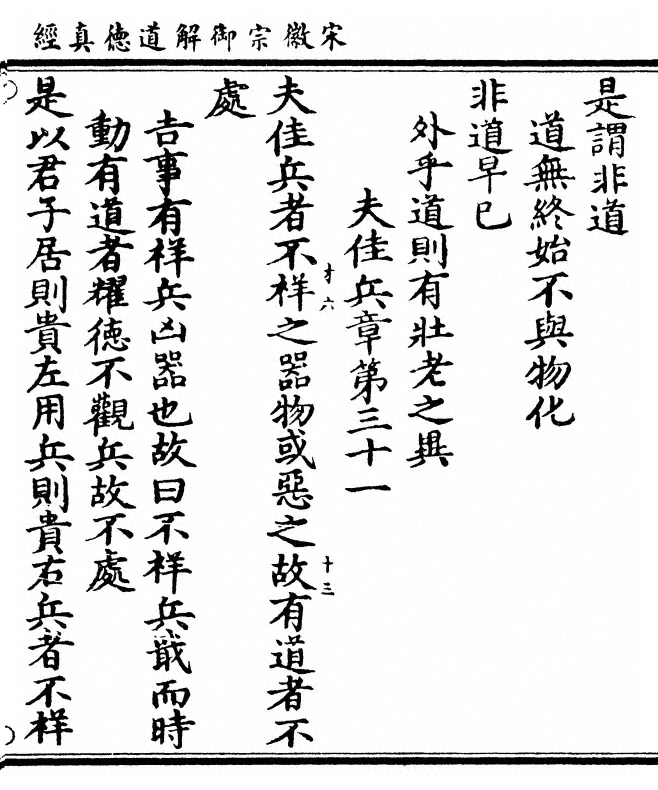 宋徽宗御解道德真經
是謂非道
道無終始不與物化
非道早已
外乎道則有壯老之異
夫佳兵章第三十一
夫佳兵者不祥之器物或惡之故有道者不
才六
十三
處
吉事有祥兵凶器也故曰不祥兵戢而時
動有道者耀德不觀兵故不處
是以君子居則貴左用兵則貴右兵者不祥